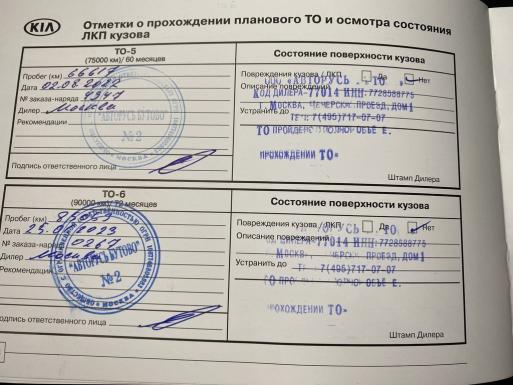 KIA
Отметки о прохождении планового ТО и осмотра состояния
ЛКП кузова
ТО-5
(75000 км)/ 60 месяцев
Состояние поверхности кузова
Пробег (км) 66617
Дата 02.08.2022
№ заказа-наряда
Дилер Москва
Рекомендации
"АВТОРУСЬ БУТОВО"
№2
МОСКВА
Подпись ответственного лица
Повреждения кузова / ЛКП Да Нет
ООО «АВТОРУСЬ - ТО»
Описание повреждений
КОД ДИЛЕРА-77014 ИНН:7728588775
Г. МОСКВА, ЧЕЧЕРСКИЙ ПРОЕЗД, ДОМ1
Устранить до
ТЕЛ: 7(495)717-07-07
ТО ПРОЙДЕНО В ПОЛНОМ ОБЪЕМЕ.
ПРОХОЖДЕНИИ ТО»
Штамп Дилера
ТО-6
(90000 км)/ 72 месяцев
Состояние поверхности кузова
Пробег (км)
Дата
№ заказ-наряда 0267
Дилер Москва
Рекомендации
"АВТОРУСЬ БУТОВО"
№2
МОСКВА
Подпись ответственного лица
Повреждения кузова / ЛКП Да Нет
Описание повреждений
КОД ДИЛЕРА-77014 ИНН:7728588775
МОСКВА, ПРОЕЗД, ДОМ1
Устранить до
7(495)717-07-07
ПРОХОЖДЕНИИ ТО»
Штамп Дилера